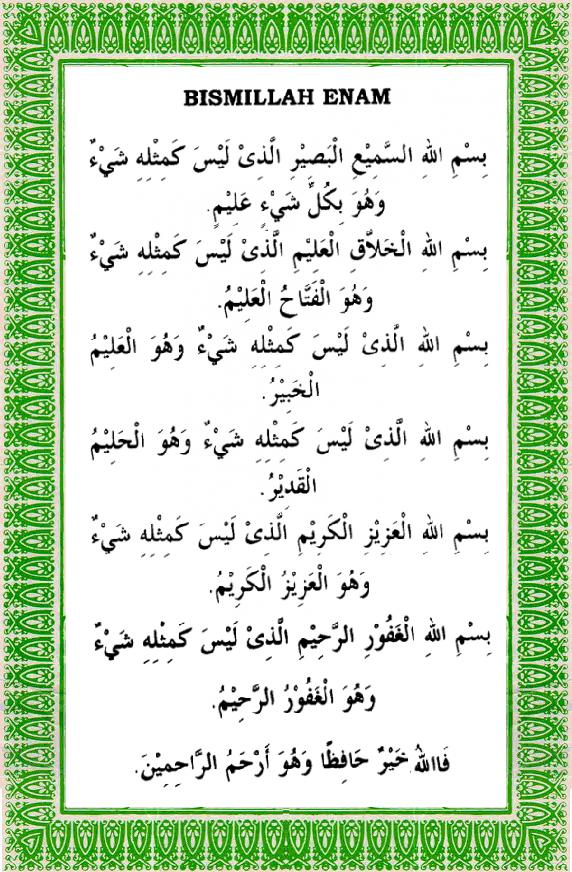 BISMILLAH ENAM
بِسْمِ اللهِ السَّمِيْعِ الْبَصِيْرِ الَّذِىْ لَيْسَ كَمِثْلِهِ شَيْءٌ
وَهُوَ بِكُلِّ شَيْءٍ عَلِيْمٍ.
بِسْمِ اللهِ الْخَلاَّقِ الْعَلِيْمِ الَّذِىْ لَيْسَ كَمِثْلِهِ شَيْءٌ
وَهُوَ الْفَتَّاحُ الْعَلِيْمُ.
بِسْمِ اللهِ الَّذِىْ لَيْسَ كَمِثْلِهِ شَيْءٌ وَهُوَ الْعَلِيْمُ
الْخَبِيْرُ.
بِسْمِ اللهِ الَّذِىْ لَيْسَ كَمِثْلِهِ شَيْءٌ وَهُوَ الْحَلِيْمُ
الْقَدِيْرُ.
بِسْمِ اللهِ الْعَزِيْزِ الْكَرِيْمِ الَّذِىْ لَيْسَ كَمِثْلِهِ شَيْءٌ
وَهُوَ الْعَزِيْزُ الْكَرِيْمُ.
بِسْمِ اللهِ الْغَفُوْرِ الرَّحِيْمِ الَّذِىْ لَيْسَ كَمِثْلِهِ شَيْءٌ
وَهُوَ الْغَفُوْرُ الرَّحِيْمُ.
فَااللهُ خَيْرٌ حَافِظًا وَهُوَ أَرْحَمُ الرَّاحِمِيْنَ.